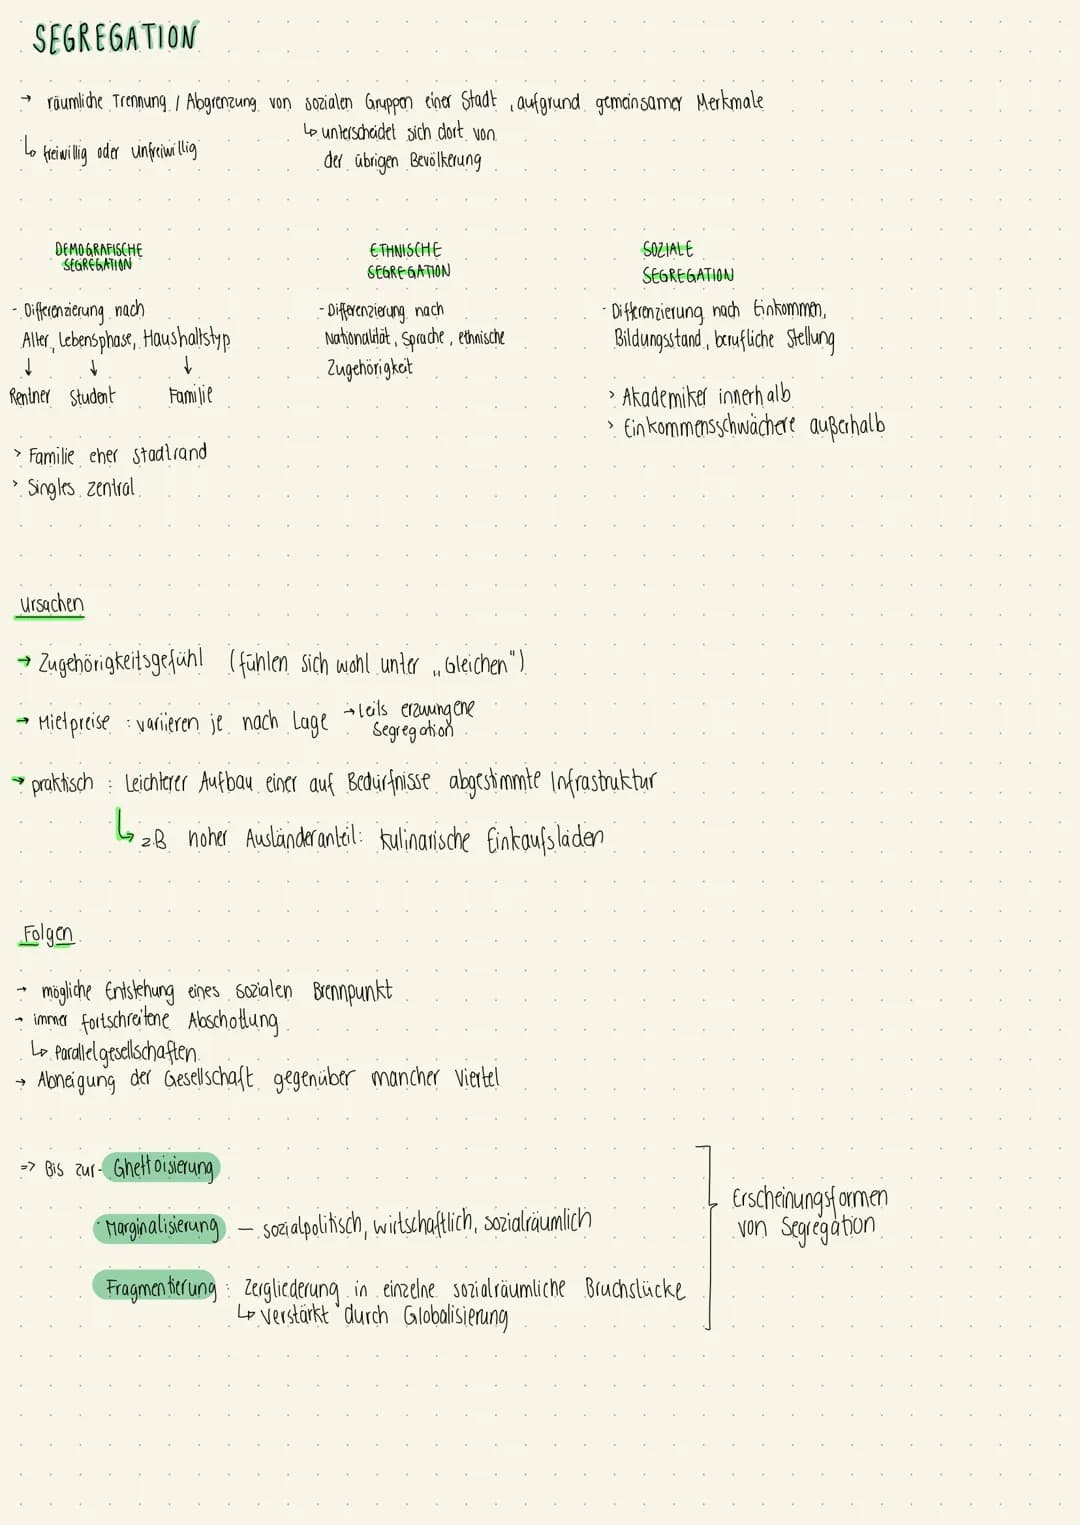 SEGREGATION
→ räumliche Trennung / Abgrenzung von sozialen Gruppen einer Stadt, aufgrund gemeinsamer Merkmale
↳ unterscheidet sich dort von
der übrigen Bevölkerung
↳ freiwillig oder unfreiwillig
DEMOGRAFISCHE
SEGREGATION
- Differenzierung nach
Alter, Lebensphase, Haushaltstyp
↓ ↓ ↓
Rentner Student Familie
> Familie eher Stadtrand
> Singles zentral
ETHNISCHE
SEGREGATION
- Differenzierung nach
Nationalität, Sprache, ethnische
Zugehörigkeit
SOZIALE
SEGREGATION
- Differenzierung nach Einkommen,
Bildungsstand, berufliche Stellung
> Akademiker innerhalb
> Einkommensschwächere außerhalb
Ursachen
→ Zugehörigkeitsgefühl (fühlen sich wohl unter „Gleichen")
→ Mietpreise : variieren je nach Lage → teils erzwungene
Segregation
→ praktisch : Leichterer Aufbau einer auf Bedürfnisse abgestimmte Infrastruktur
↳ z.B. hoher Ausländeranteil: kulinarische Einkaufsläden
Folgen
→ mögliche Entstehung eines sozialen Brennpunkt
→ immer fortschreitene Abschottung
↳ Parallelgesellschaften
→ Abneigung der Gesellschaft gegenüber mancher Viertel
=> Bis zur - Ghettoisierung
- Marginalisierung — sozialpolitisch, wirtschaftlich, sozialräumlich
Fragmentierung : Zergliederung in einzelne sozialräumliche Bruchstücke
↳ verstärkt durch Globalisierung
Erscheinungsformen
von Segregation